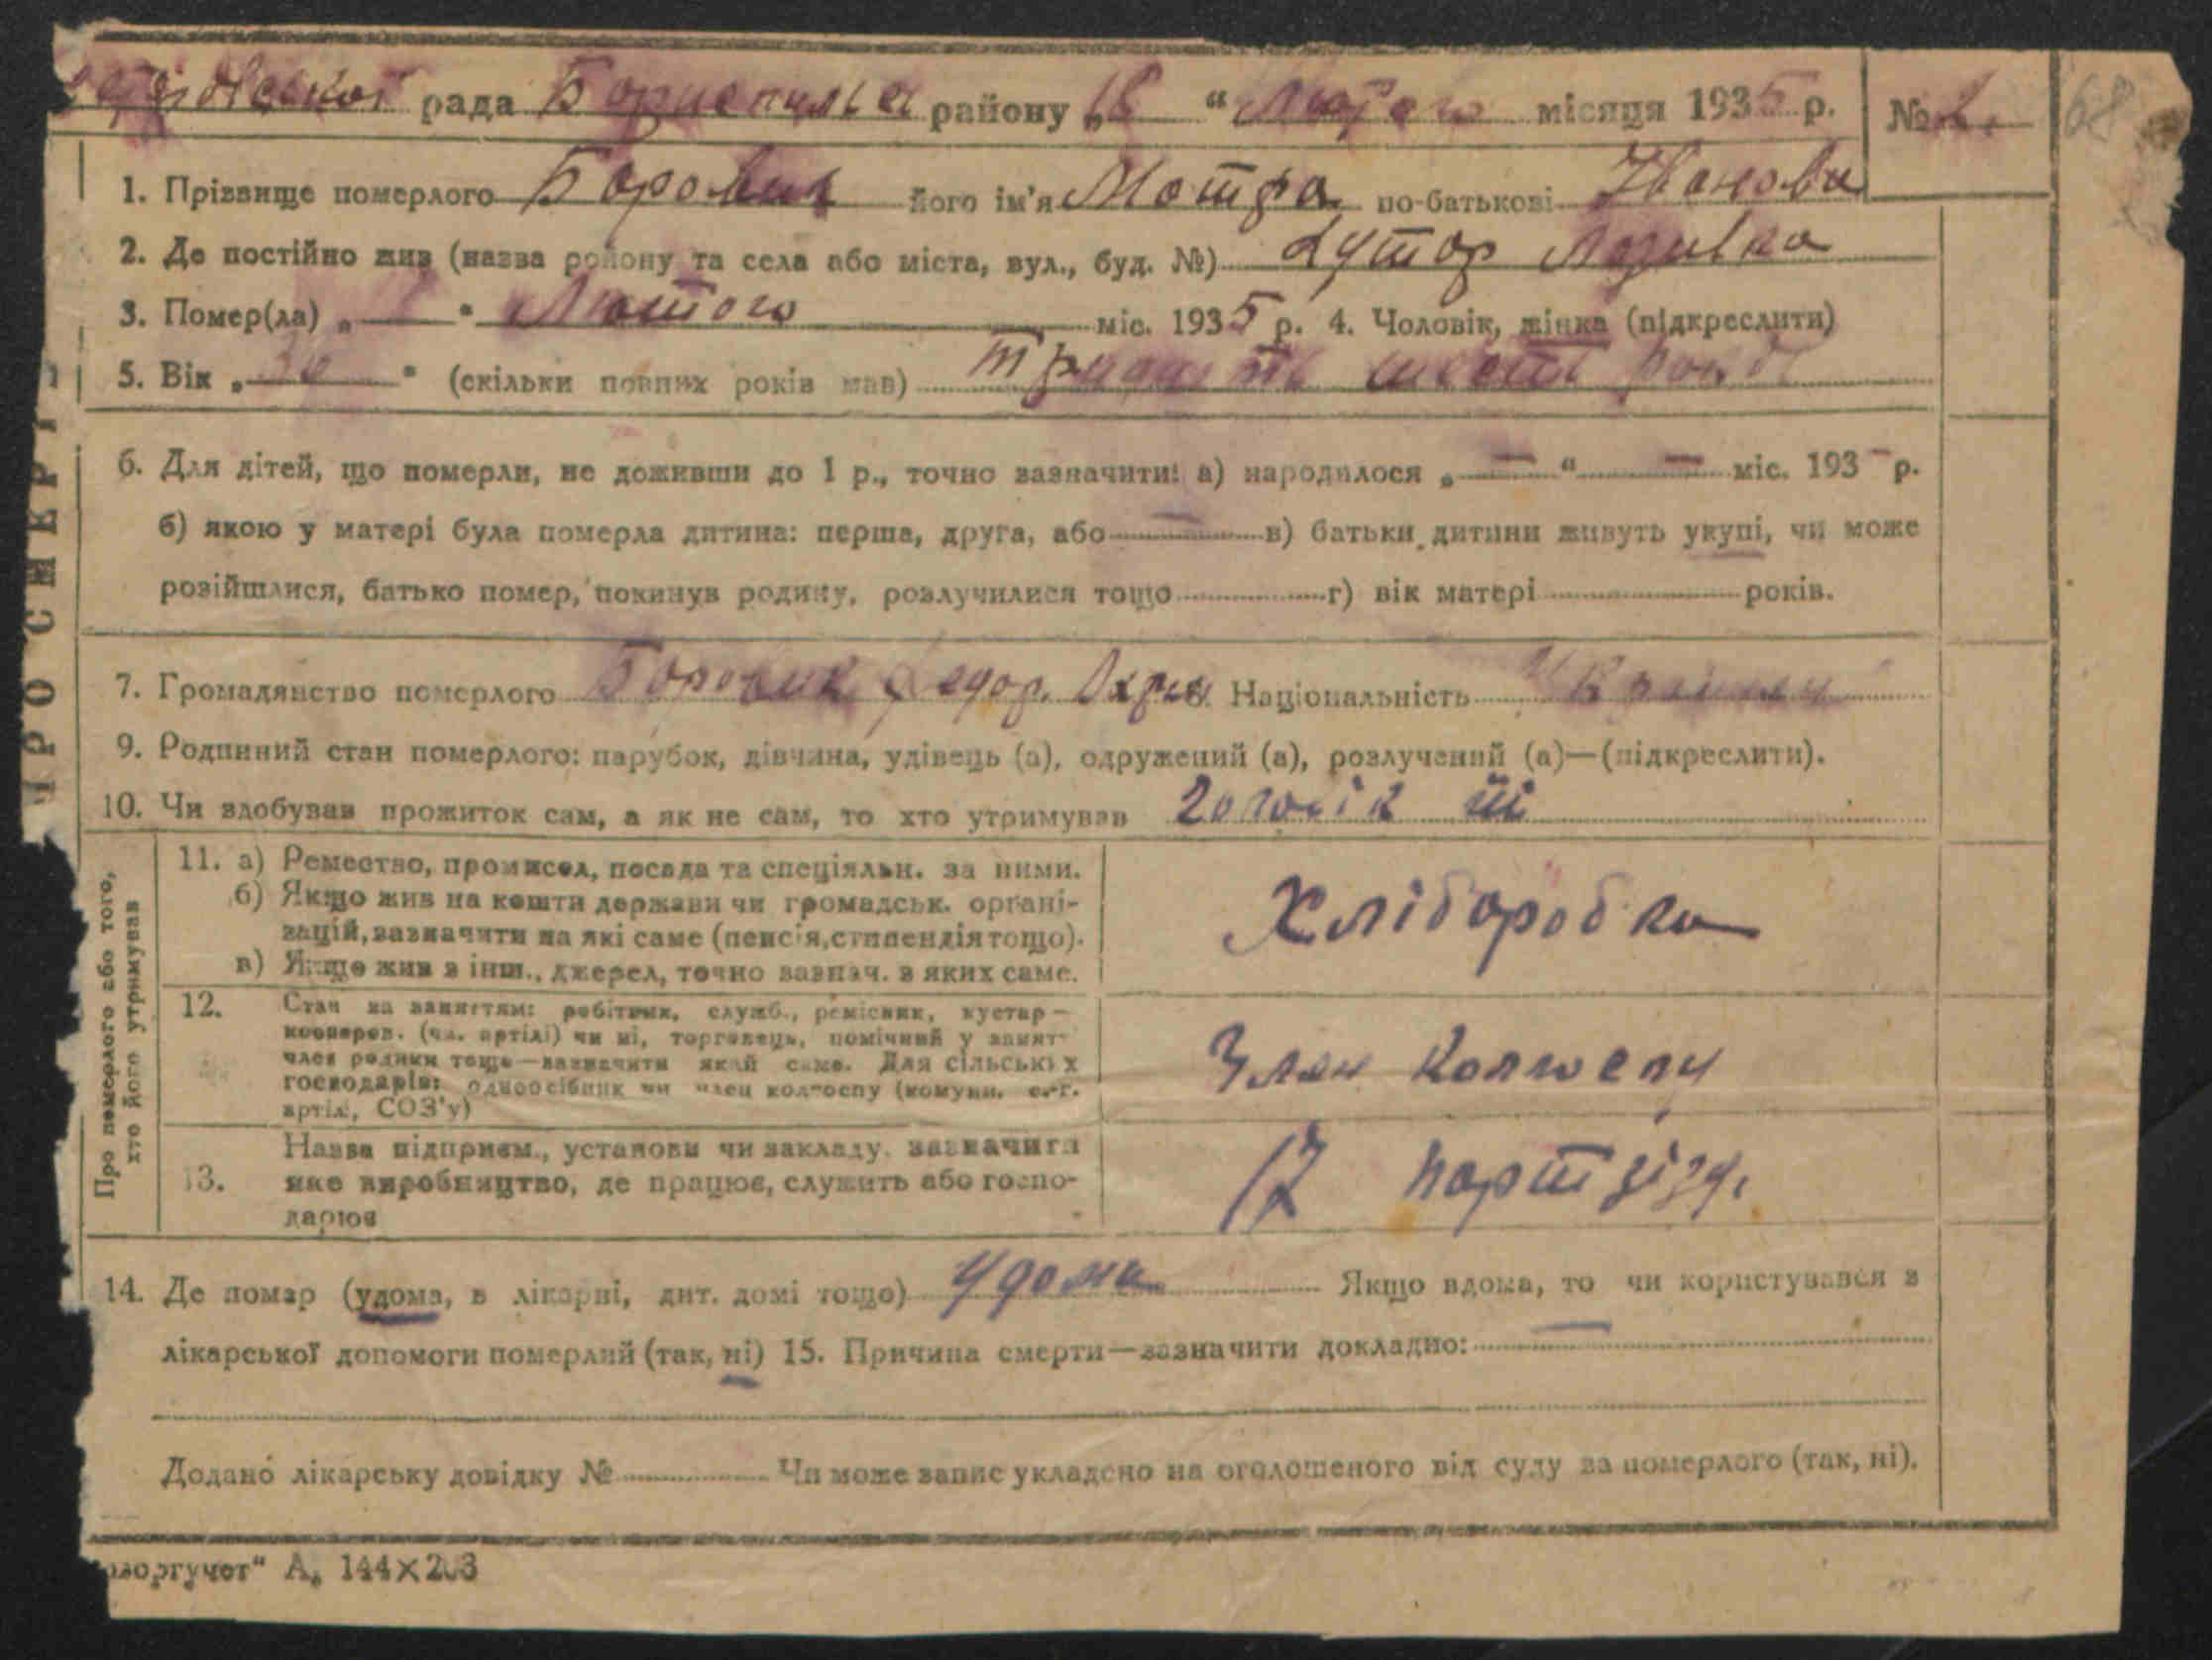 рада Бориспильск району „18 “ Лютого місяця 1935 р. №
68
1. Прізвище померлого Боровик його ім'я Мотра по-батькові Іванова
2. Де постійно жив (назва району та села або міста, вул., буд. №) Хутор
3. Помер(ла) „ “ Лютого міс. 1935 р. 4. Чоловік, жінка (підкреслити)
5. Вік „36“ (скільки повних років мав) тридцять шость років
ПРО СМЕРТЬ
6. Для дітей, що померли, не доживши до 1 р., точно зазначити: а) народилося „—“ — міс. 193- р.
б) якою у матері була померла дитина: перша, друга, або — в) батьки дитини живуть укупі, чи може
розійшлися, батько помер, покинув родину, розлучилися тощо г) вік матері років.
7. Громадянство померлого Боровик Федор. 8. Національність
9. Родинний стан померлого: парубок, дівчина, удівець (а), одружений (а), розлучений (а)—(підкреслити).
10. Чи здобував прожиток сам, а як не сам, то хто утримував її
Про померлого або того, хто його утримував
11. а) Ремество, промисел, посада та спеціяльн. за ними.
б) Якщо жив на кошти держави чи громадськ. органі-
зацій, зазначити на які саме (пенсія, стипендія тощо).
в) Якщо жив з інш., джерел, точно зазнач. з яких саме.
Хліборобка
12. Стан за заняттям: робітник, служб., ремісник, кустар—
кооперов. (чл. артілі) чи ні, торговець, помічний у занят-
член родини тощо—зазначити який саме. Для сільських
господарів: одноосібник чи член колгоспу (комуни, с.-г.
артілі, СОЗ'у)
Член колгоспу
13. Назва підприєм., установи чи закладу, зазначити
яке виробництво, де працює, служить або госпо-
дарює
17 партзізду.
14. Де помер (удома, в лікарні, дит. домі тощо) удома Якщо вдома, то чи користувався з
лікарської допомоги померлий (так, ні) 15. Причина смерти—зазначити докладно:
Додано лікарську довідку № Чи може запис укладено на оголошеного від суду за померлого (так, ні).
оюзоргучет“ А, 144×203